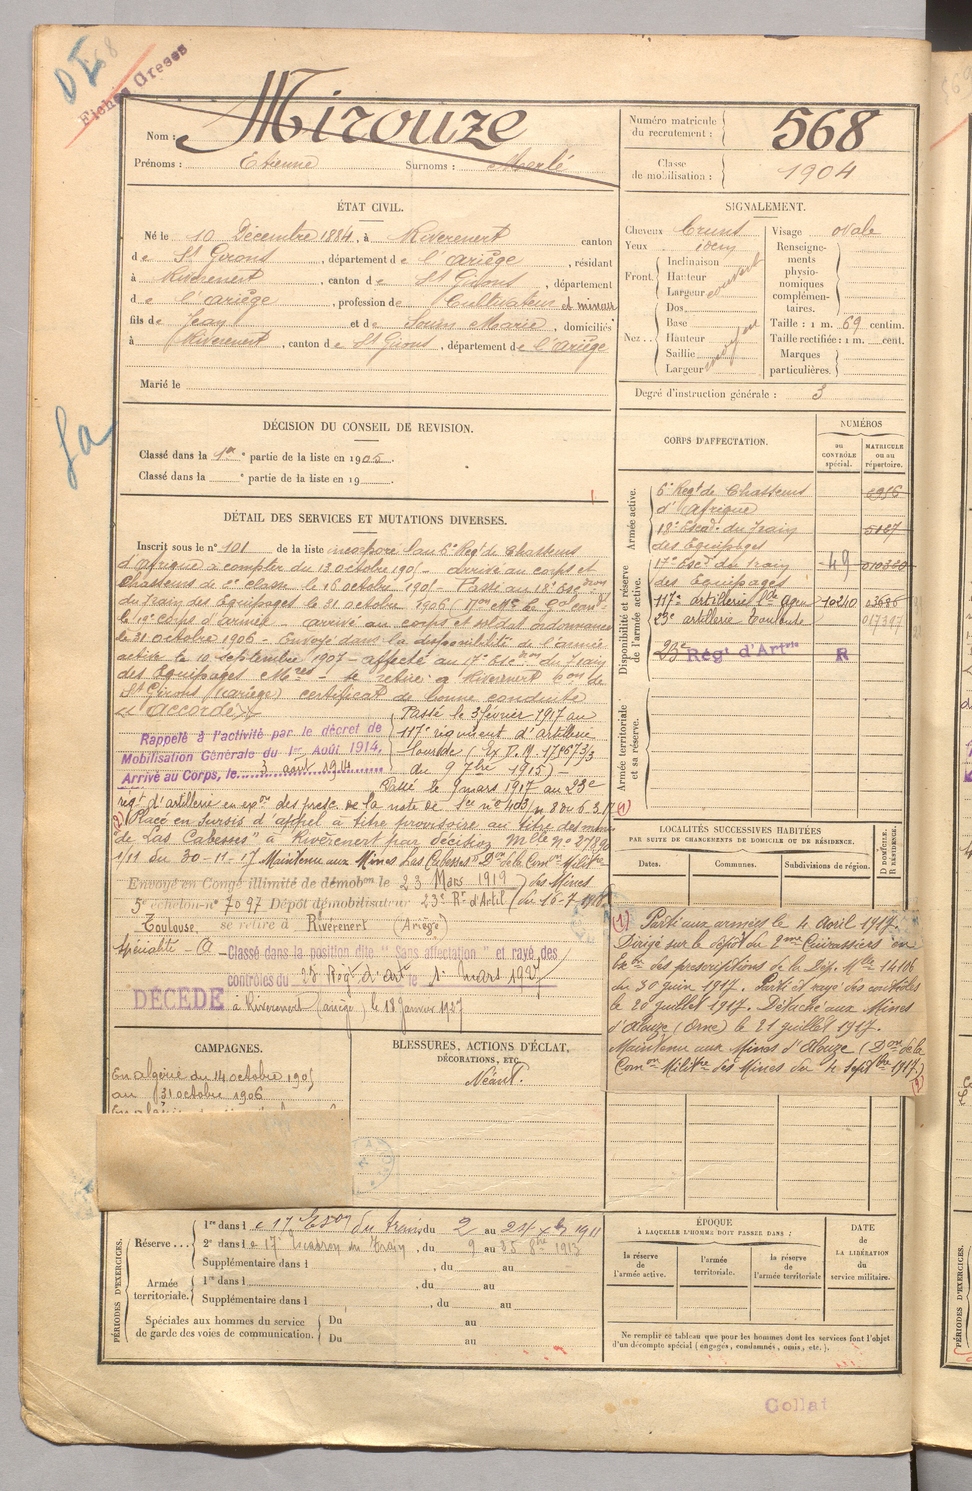 Fiches Greses
Nom : Mirouze
Prénoms : Etienne Surnoms : Merlé
Numéro matricule
du recrutement : 568
Classe
de mobilisation : 1904
ÉTAT CIVIL.
Né le 10 Décembre 1884, à Rivèrenert canton
de St Girons, département de l'Ariège, résidant
à Rivèrenert, canton de St Girons, département
de l'ariège, profession de Cultivateur et mineur
fils de Jean et de Souin Marie, domiciliés
à Rivèrenert, canton de St Girons, département de l'Ariège
Marié le
SIGNALEMENT.
Cheveux bruns
Yeux
Front : Inclinaison
Hauteur
Largeur couvert
Nez : Dos
Base
Hauteur
Saillie
Largeur moyen
Visage ovale
Renseigne-
ments
physio-
nomiques
complémen-
taires.
Taille : 1 m. 69 centim.
Taille rectifiée : 1 m. cent.
Marques
particulières.
Degré d'instruction générale : 3
DÉCISION DU CONSEIL DE REVISION.
Classé dans la 1re partie de la liste en 1905.
Classé dans la partie de la liste en 19
CORPS D'AFFECTATION.
NUMÉROS
au
CONTRÔLE
spécial.
MATRICULE
ou au
répertoire.
Armée active.
6e Regt de Chasseurs
d'Afrique
18e Escon du Train
des Equipages 5127
Disponibilité et réserve
de l'armée active.
17e Escon du Train
des Equipages 49
117e artillerie 10240
23e artillerie Toulouse
23e Régt d'Artrie R
Armée territoriale
et sa réserve.
(1)
DÉTAIL DES SERVICES ET MUTATIONS DIVERSES.
Inscrit sous le n° 101 de la liste incorporé au 6e Regt de Chasseurs
d'Afrique à compter du 13 octobre 1905 arrivé au corps et
Chasseurs de 2e classe le 16 octobre 1905 - Passé au 18e Escron
du Train des Equipages le 31 octobre 1906
le 19e Corps d'armée - arrivé au corps et soldat ordonnance
le 31 octobre 1906 - Envoyé dans la disponibilité de l'armée
active le 10 septembre 1907 - affecté au 17e Escron du Train
des Equipages Mres - se retire à Rivèrenert Con de
St Girons (Ariège) certificat de bonne conduite
« accordé »
Rappelé à l'activité par le décret de
Mobilisation Générale du 1er Août 1914,
Arrivé au Corps, le 3 août 1914
Passé le 3 février 1917 au
117e régiment d'artillerie
lourde
du 9 7bre 1915) -
Passé le 9 mars 1917 au 23e
regt d'artillerie en exon des presc. de la note de
(2) Placé en sursis d'appel à titre provisoire au titre des mines
"de Las Cabesses" à Rivèrenert par décision Mlle n° 27892
1/11 du 30-11-17 Maintenu aux Mines Las Cabesses Don de la Comon Militre
des Mines
(du 16-7-1918)
Envoyé en Congé illimité de démobon le 23 Mars 1919
5e échelon n° 7097 Dépôt démobilisateur 23e Rt d'Artil
Toulouse, se retire à Rivèrenert (Ariège)
Spécialité - A - Classé dans la position dite "Sans affectation" et rayé des
contrôles du 23 Régt d'artie le 1er mars 1927
DÉCÉDÉ à Rivèrenert (ariège) le 18 Janvier 1927
LOCALITÉS SUCCESSIVES HABITÉES
PAR SUITE DE CHANGEMENTS DE DOMICILE OU DE RÉSIDENCE.
Dates.
Communes.
Subdivisions de région.
D DOMICILE.
R RÉSIDENCE.
(1) Parti aux armées le 4 Avril 1917.
Dirigé sur le dépôt du 2eme Cuirassiers en
Exon des prescriptions de la Dép. Mlle 14106
du 30 juin 1917. Parti et rayé des contrôles
le 20 juillet 1917. Détaché aux Mines
d'Alouze (Orne) le 21 juillet 1917.
Maintenu aux Mines d'Alouze (Don de la
Comon Militre des Mines du 4 Septbre 1917)
(2)
CAMPAGNES.
En algérie du 14 octobre 1905
au 31 octobre 1906
BLESSURES, ACTIONS D'ÉCLAT,
DÉCORATIONS, ETC.
Néant.
PÉRIODES D'EXERCICES.
Réserve 1re dans le 17e Escon du train du 2 au 24 1911
2e dans le 17e Escadron du Train, du 9 au 25 1913
Supplémentaire dans l , du au
Armée
territoriale. 1re dans l , du au
Supplémentaire dans l , du au
Spéciales aux hommes du service
de garde des voies de communication. Du au
Du au
ÉPOQUE
À LAQUELLE L'HOMME DOIT PASSER DANS :
la réserve
de
l'armée active.
l'armée
territoriale.
la réserve
de
l'armée territoriale
DATE
de
LA LIBÉRATION
du
service militaire.
Ne remplir ce tableau que pour les hommes dont les services font l'objet
d'un décompte spécial (engagés, condamnés, omis, etc.).
Collat